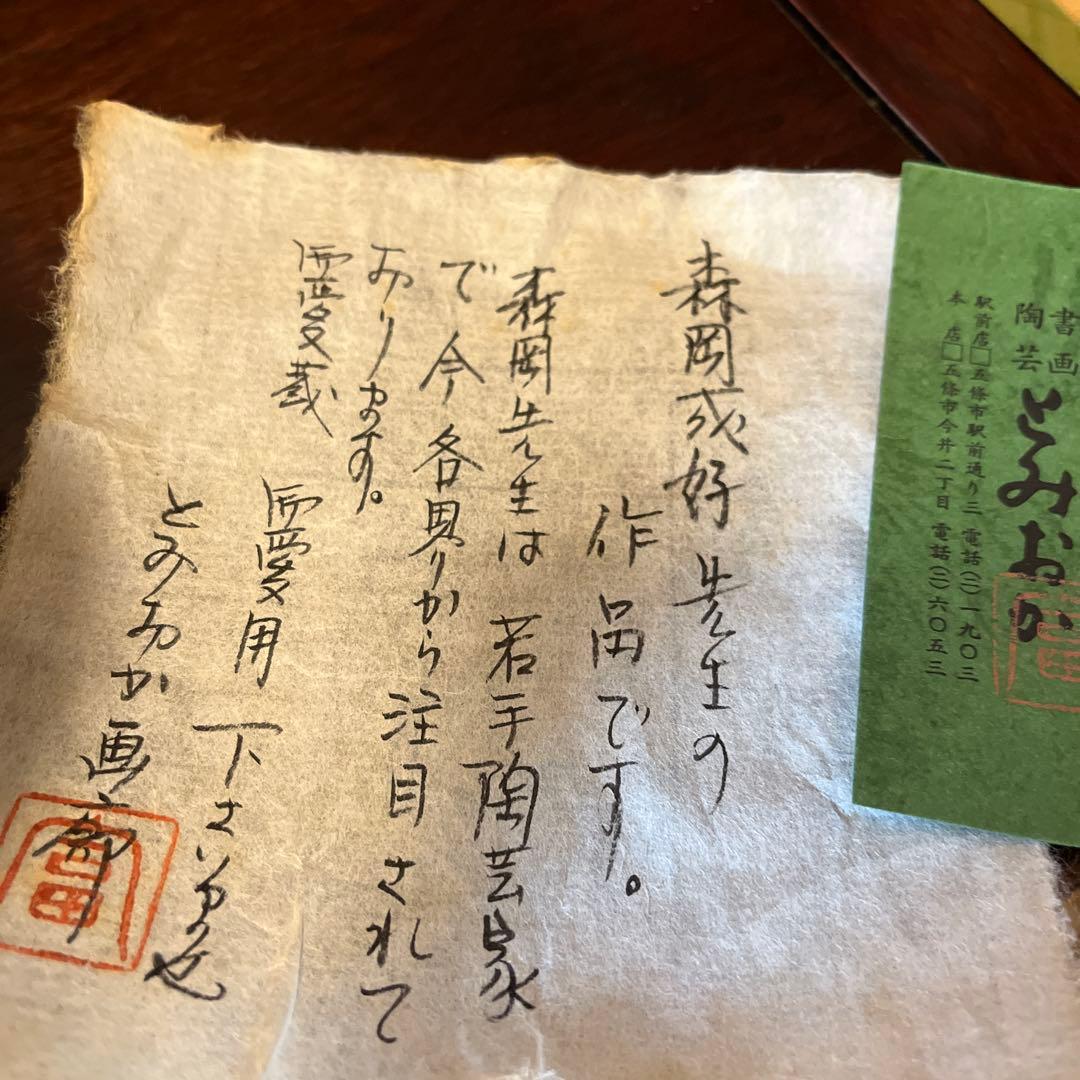 書画
陶芸
とみおか
駅前店□五條市駅前通り三 電話(二)一九〇三
本店□五條市今井二丁目 電話(二)六〇五三
森岡成好先生の
作品です。
森岡先生は 若手陶芸家
で今各界から注目されて
おります。
御愛蔵 御愛用下さいませ
とみおか画廊